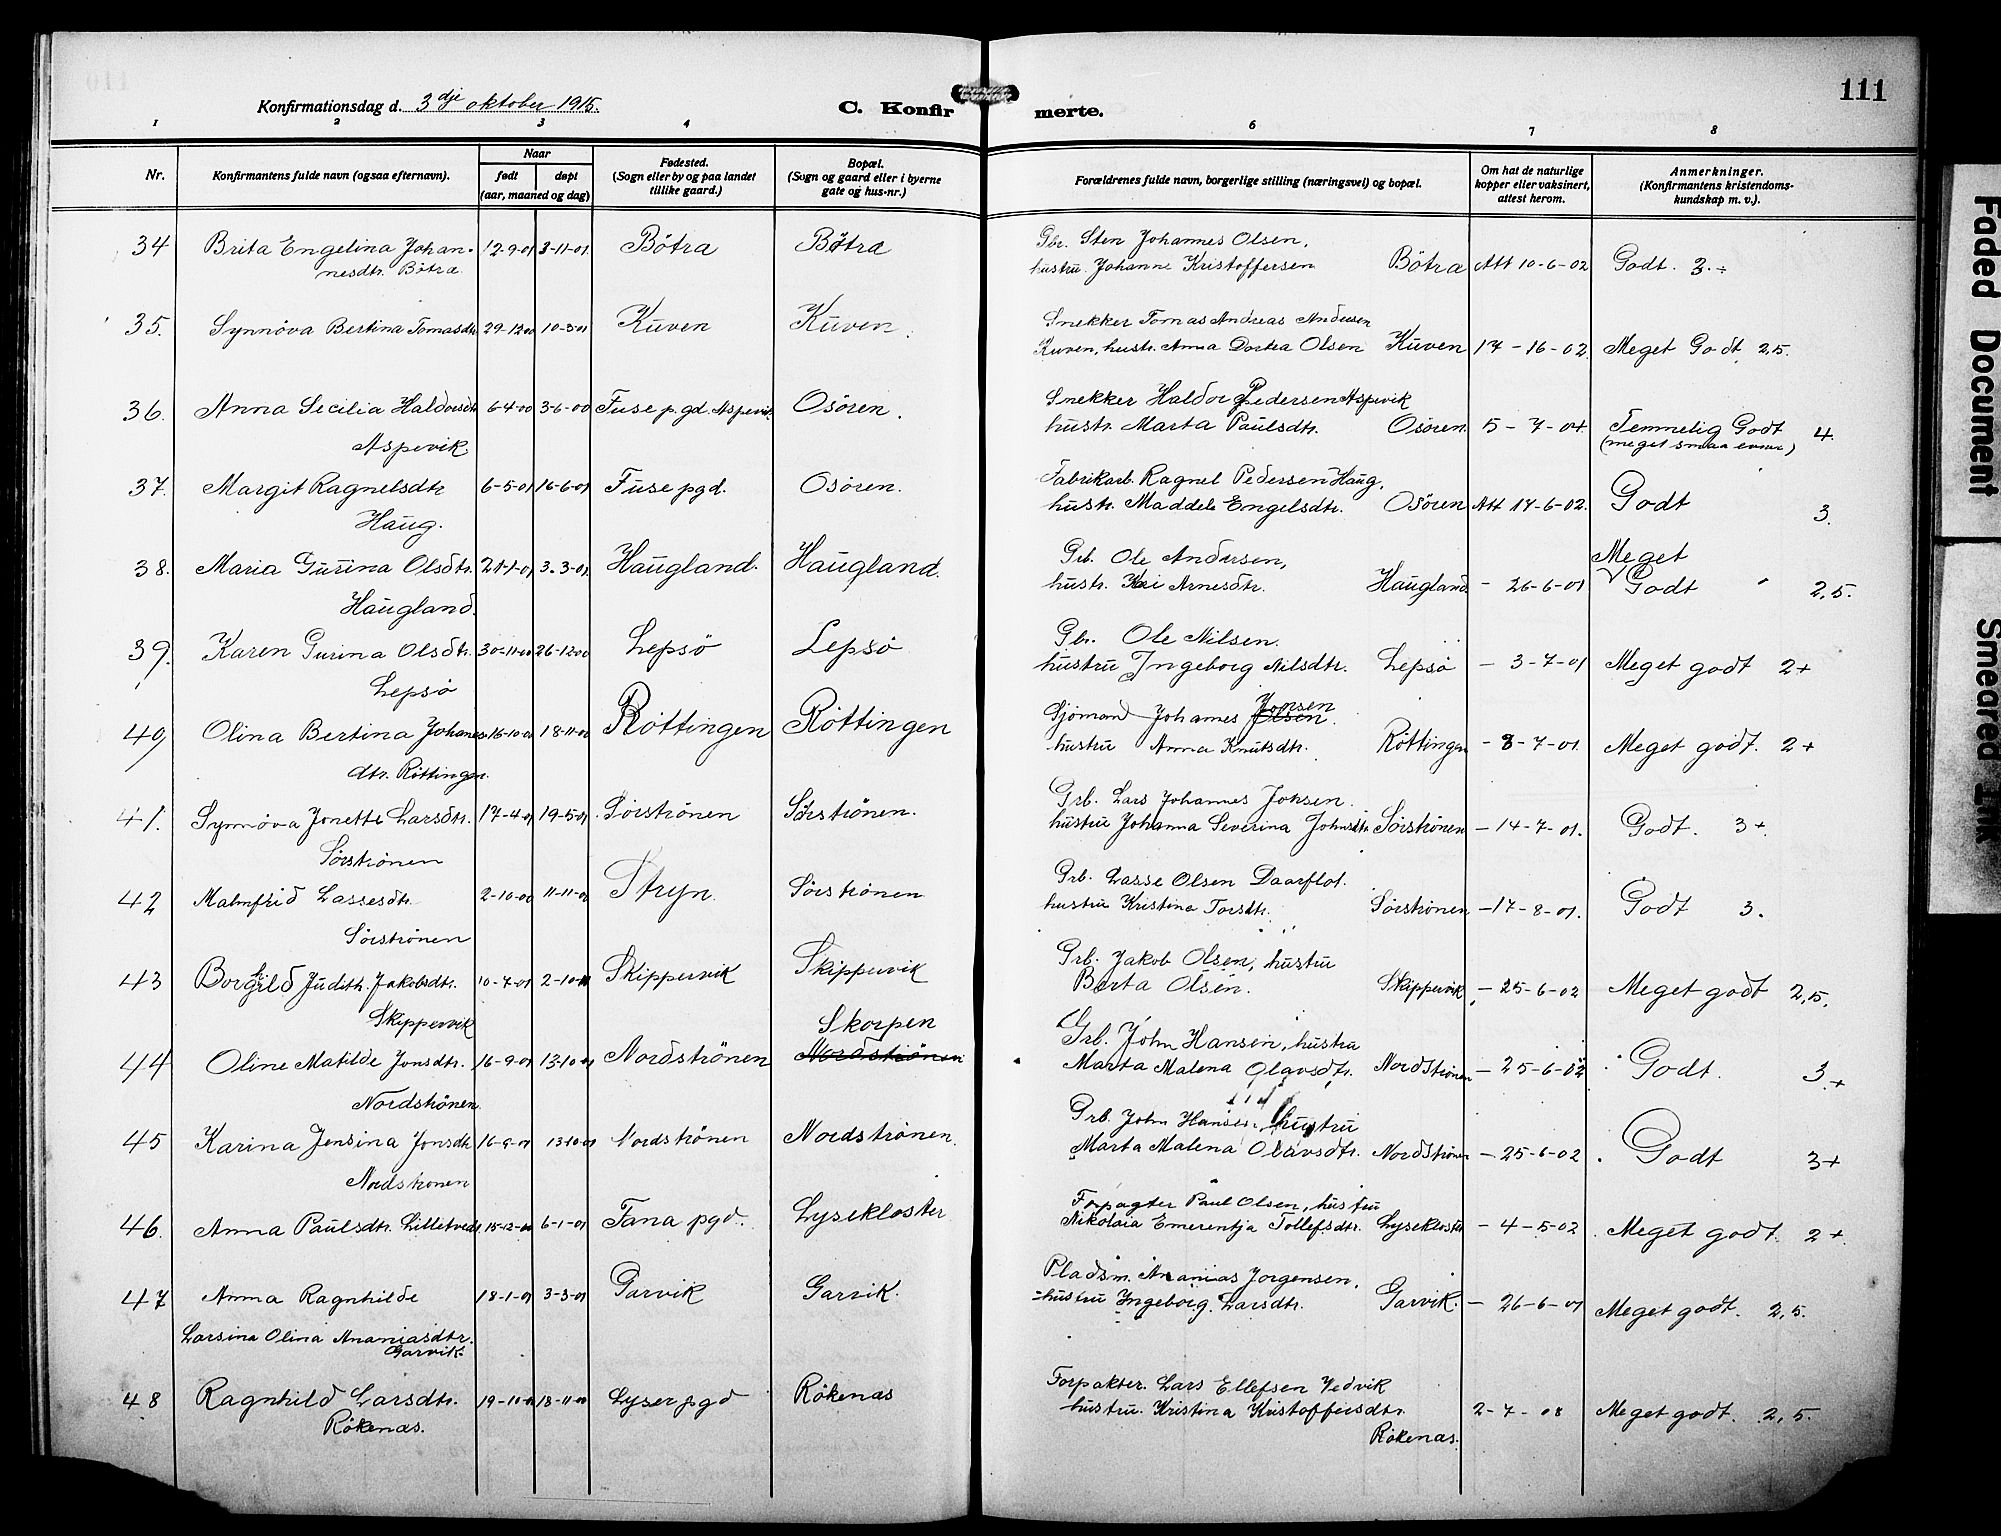 111
Konfirmationsdag d. 3dje oktober 1915.
C. Konfirmerte.
1 2 3 4 6 7 8
Nr.
Konfirmantens fulde navn (ogsaa efternavn).
Naar
født
døpt
(aar, maaned og dag)
Fødested.
(Sogn eller by og paa landet
tillike gaard.)
Bopæl.
(Sogn og gaard eller i byerne
gate og hus-nr.)
Forældrenes fulde navn, borgerlige stilling (næringsvei) og bopæl.
Om hat de naturlige
kopper eller vaksinert,
attest herom.
Anmerkninger.
(Konfirmantens kristendoms-
kundskap m. v.).
34 Brita Engelina Johan- 12-9-01 3-11-01 Bötra Bötra Gbr. Sten Johannes Olsen,
nesdtr. Bötra hustru. Johanne Kristoffersen Bötra Att 10-6-02 Godt. 3.÷
35. Synnöva Bertina Tomasdtr 29-12-00 10-3-01 Kuven Kuven. Snekker Tomas Andreas Andersen
Kuven, hustr. Anna Dortea Olsen Kuven 17-16-02 Meget Godt 2,5.
36. Anna Secilia Haldorsdtr 6-4-00 3-6-00 Fuse p.gd. Aspevik Osören. Snekker Haldor Pedersen Aspevik
Aspevik hustr. Marta Paulsdtr. Osören. 5-7-04 Temmelig Godt 4.
(meget smaa evner)
37. Margit Ragnelsdtr 6-5-01 16-6-01 Fuse pgd. Osören. Fabrikarb. Ragnel Pedersen Haug,
Haug. hustr. Maddele Engelsdtr. Osören Att 17-6-02. Godt 3.
38. Maria Gurina Olsdtr. 21-1-01 3.3-01 Haugland. Haugland. Grb. Ole Andersen,
Haugland. hustr. Kari Arnesdtr. Haugland - 26-6-01 Meget
Godt 2,5.
39. Karen Gurina Olsdtr. 30-11-00 26-12-00 Lepsö Lepsö Gbr. Ole Nilsen.
Lepsö hustru Ingeborg Nilsdtr. Lepsö - 3-7-01 Meget godt 2+
40 Olina Bertina Johannes 16-10-01 18-11-01 Röttingen Röttingen Sjömand Johannes Olsen. Jonsen
dtr. Röttingen. hustru Anna Knutsdtr. Röttingen - 8-7-01. Meget godt. 2+
41. Synnöva Jonette Larsdtr. 17-4-01 19-5-01 Sörströnen Sörströnen. Grb. Lars Johannes Jonsen.
Sörströnen hustru Johanna Severina Johnsdtr. Sörströnen - 14-7-01. Godt. 3+
42 Malmfrid Lassesdtr. 2-10-00 11-11-00 Stryn. Sörströnen Grb. Lasse Olsen Daarflot.
Sörströnen hustru Kristine Torsdtr. Sörströnen -17-8-01. Godt 3.
43 Borghild Judith. Jakobsdtr. 10-7-01 2-10-01 Skippervik Skippervik Grb. Jakob Olsen, hustru
Skippervik Berta Olsen. Skippervik - 25-6-02 Meget godt 2,5.
44 Oline Matilde Jonsdtr. 16-9-01 13-10-01 Nordströnen Skorpen
Nordströnen Grb. John Hansen, hustru
Nordströnen. Marta Malena Olavsdtr. Nordströnen - 25-6-02 Godt. 3+
45 Karina Jensina Jonsdtr. 16-9-01 13-10-01 Nordströnen Nordströnen. Grb. John Hansen, hustru
Nordströnen Marta Malena Olavsdtr. Nordströnen - 25-6-02 Godt 3+
46. Anna Paulsdtr. Lilletvedt 15-12-00 6-1-01 Fana pgd. Lysekloster Forpagter Paul Olsen, hustru
Nikolaia Emerentja Tollefsdtr. Lysekloster - 4-5-02 Meget godt. 2+
47 Anna Ragnhilde 18-1-01 3-3-01 Garvik Garvik. Pladsm. Ananias Jorgensen,
Larsina Olina Ananiasdtr. hustru Ingeborg. Larsdtr. Garvik. - 26-6-01 Meget godt. 2,5.
Garvik.
48 Ragnhild Larsdtr. 19-10-01 18-11-00 Lyser pgd Rökenæs Forpakter. Lars Ellefsen Vedvik
Rökenæs. hustru. Kristina Kristoffersdtr. 2-7-08 Meget godt. 2,5.
Rökenæs.
Faded Document
Smeared Ink